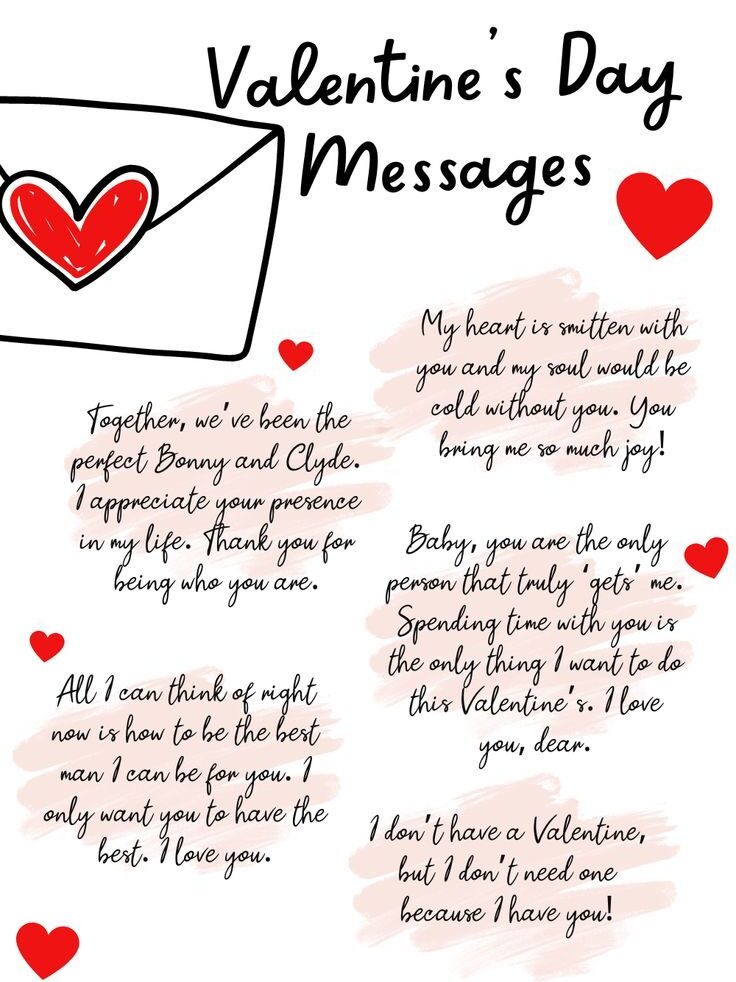 Valentine's Day
Messages
My heart is smitten with
you and my soul would be
cold without you. You
bring me so much joy!
Together, we've been the
perfect Bonny and Clyde.
I appreciate your presence
in my life. Thank you for
being who you are.
Baby, you are the only
person that truly 'gets' me.
Spending time with you is
the only thing I want to do
this Valentine's. I love
you, dear.
All I can think of right
now is how to be the best
man I can be for you. I
only want you to have the
best. I love you.
I don't have a Valentine,
but I don't need one
because I have you!